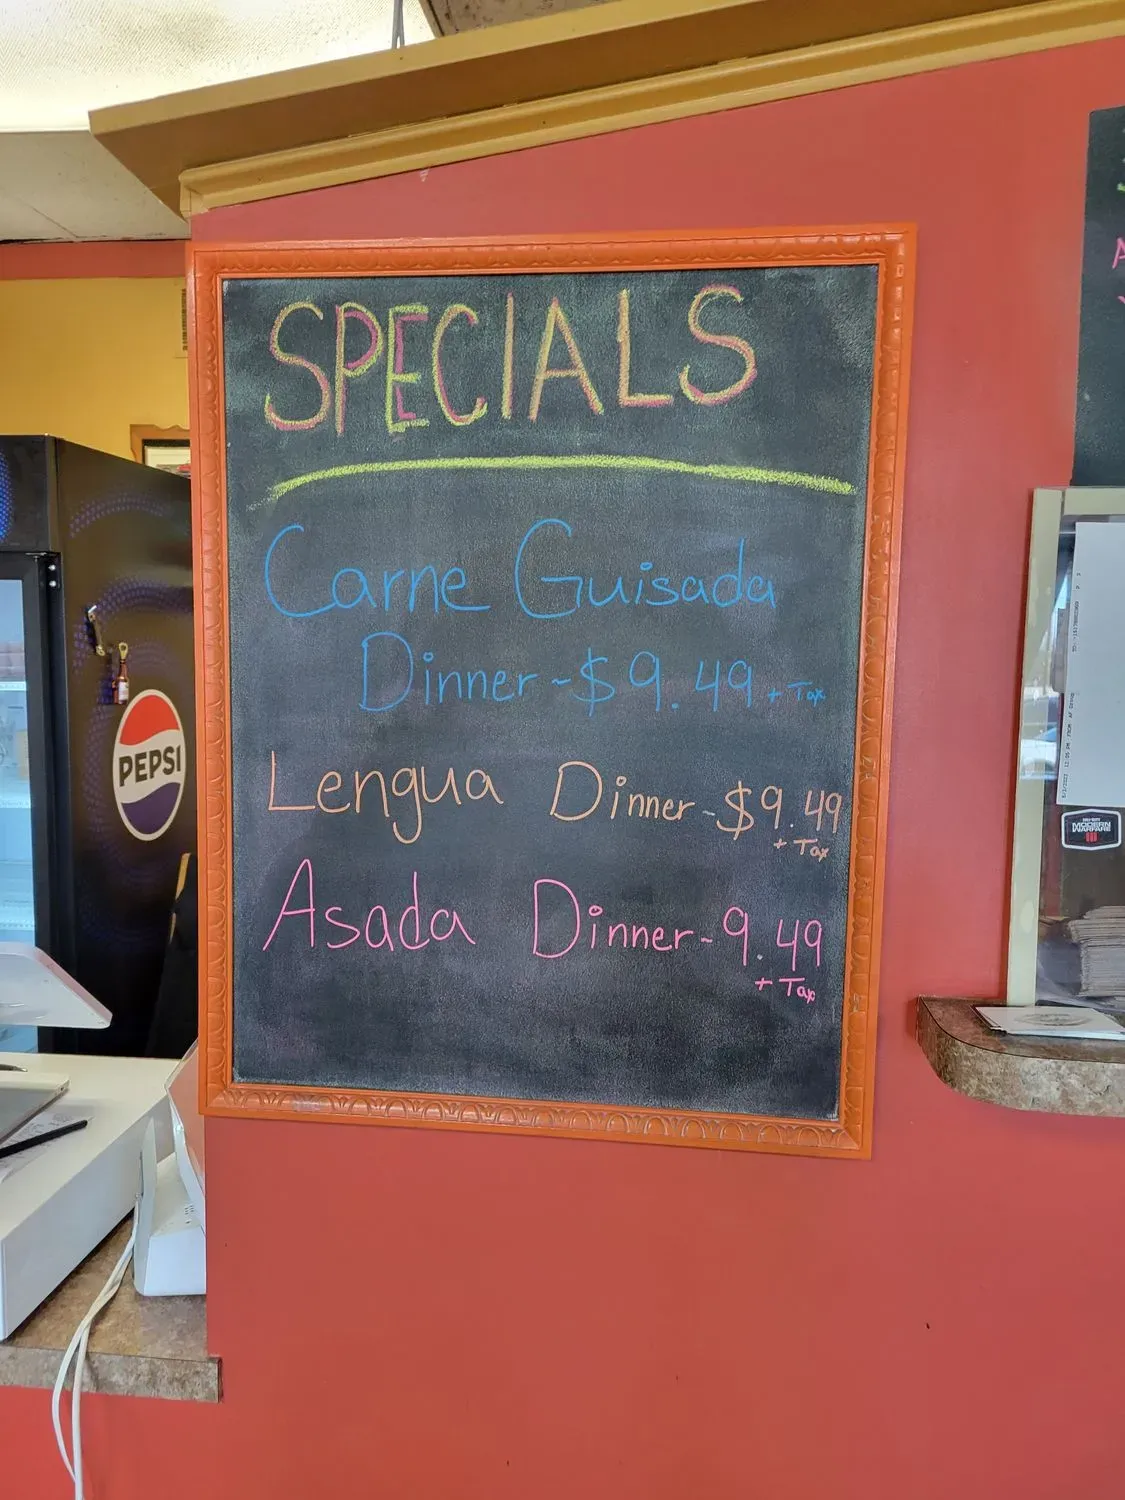 SPECIALS
Carne Guisada
Dinner ~ $9.49 + Tax
Lengua Dinner - $9.49
+ Tax
Asada Dinner - 9.49
+ Tax
PEPSI
MODERN
WARFARE
III